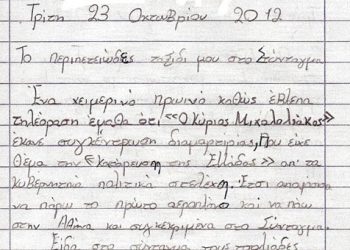 Τρίτη 23 Οκτωβρίου 2012
Το περιπετειώδες ταξίδι μου στο Σύνταγμα
Ένα χειμερινό πρωινό καθώς έβλεπα
τηλεόραση έμαθα ότι «Ο Κύριος Μιχαλολιάκος»
έκανε συγκέντρωση διαμαρτυρίας, που είχε
θέμα την «Κατάρευση της Ελλάδος» απ' τα
κυβερνητικά πολιτικά στελέχη. Έτσι αποφάσισα
να πάρω το πρώτο αεροπλάνο και να πάω
στην Αθήνα και συγκεκριμένα στο Σύνταγμα.
Είδα στο σύνταγμα τους